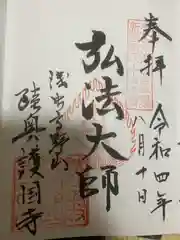 奉拝
令和四年
八月十日
弘法大師
浅虫高野山
陸奥護国寺